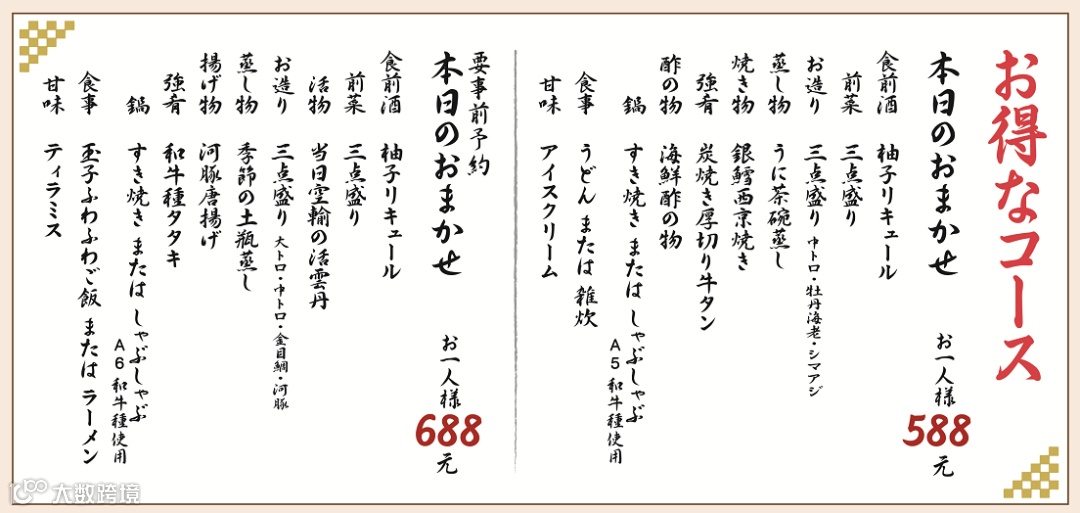 お得なコース
本日のおまかせ お一人様 588元
食前酒 柚子リキュール
前菜 三点盛り
お造り 三点盛り 中トロ・牡丹海老・シマアジ
蒸し物 うに茶碗蒸し
焼き物 銀鱈西京焼き
強肴 炭焼き厚切り牛タン
酢の物 海鮮酢の物
鍋 すき焼き または しゃぶしゃぶ
A5和牛種使用
食事 うどん または 雑炊
甘味 アイスクリーム
要事前予約
本日のおまかせ お一人様 688元
食前酒 柚子リキュール
前菜 三点盛り
活物 当日空輸の活雲丹
お造り 三点盛り 大トロ・中トロ・金目鯛・河豚
蒸し物 季節の土瓶蒸し
揚げ物 河豚唐揚げ
強肴 和牛種タタキ
鍋 すき焼き または しゃぶしゃぶ
A6和牛種使用
食事 玉子ふわふわご飯 または ラーメン
甘味 ティラミス
大数跨境